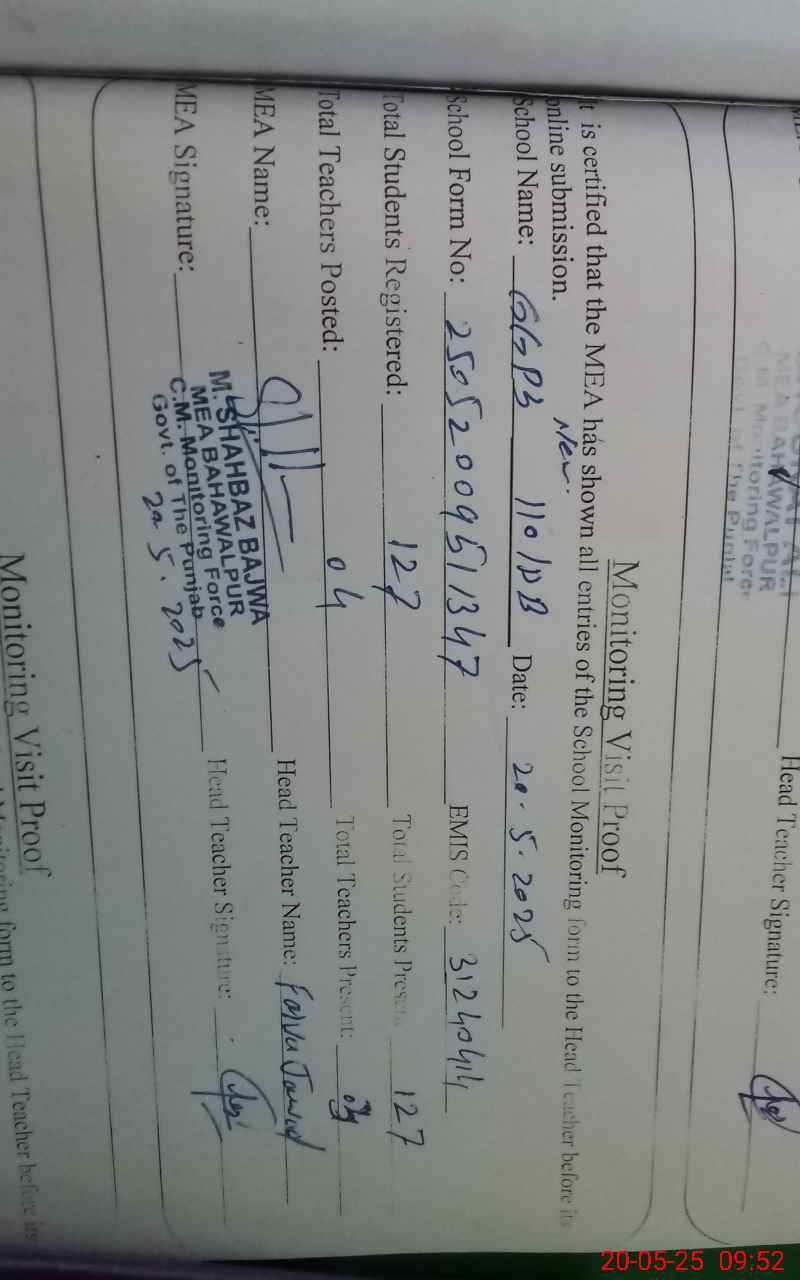 MEA BAHAWALPUR
C.M. Monitoring Force
Govt. of The Punjab
Head Teacher Signature:
Monitoring Visit Proof
It is certified that the MEA has shown all entries of the School Monitoring form to the Head Teacher before its
online submission.
New.
School Name: GGPS 110/DB Date: 20.5.2025
School Form No: 2505200951347 EMIS Code: 31240414
Total Students Registered: 127 Total Students Present: 127
Total Teachers Posted: 04 Total Teachers Present: 04
MEA Name: Head Teacher Name: Farva Jawad
MEA Signature: Head Teacher Signature:
M. SHAHBAZ BAJWA
MEA BAHAWALPUR
C.M. Monitoring Force
Govt. of The Punjab
20.5.2025
Monitoring Visit Proof
Monitoring form to the Head Teacher before its
20-05-25 09:52